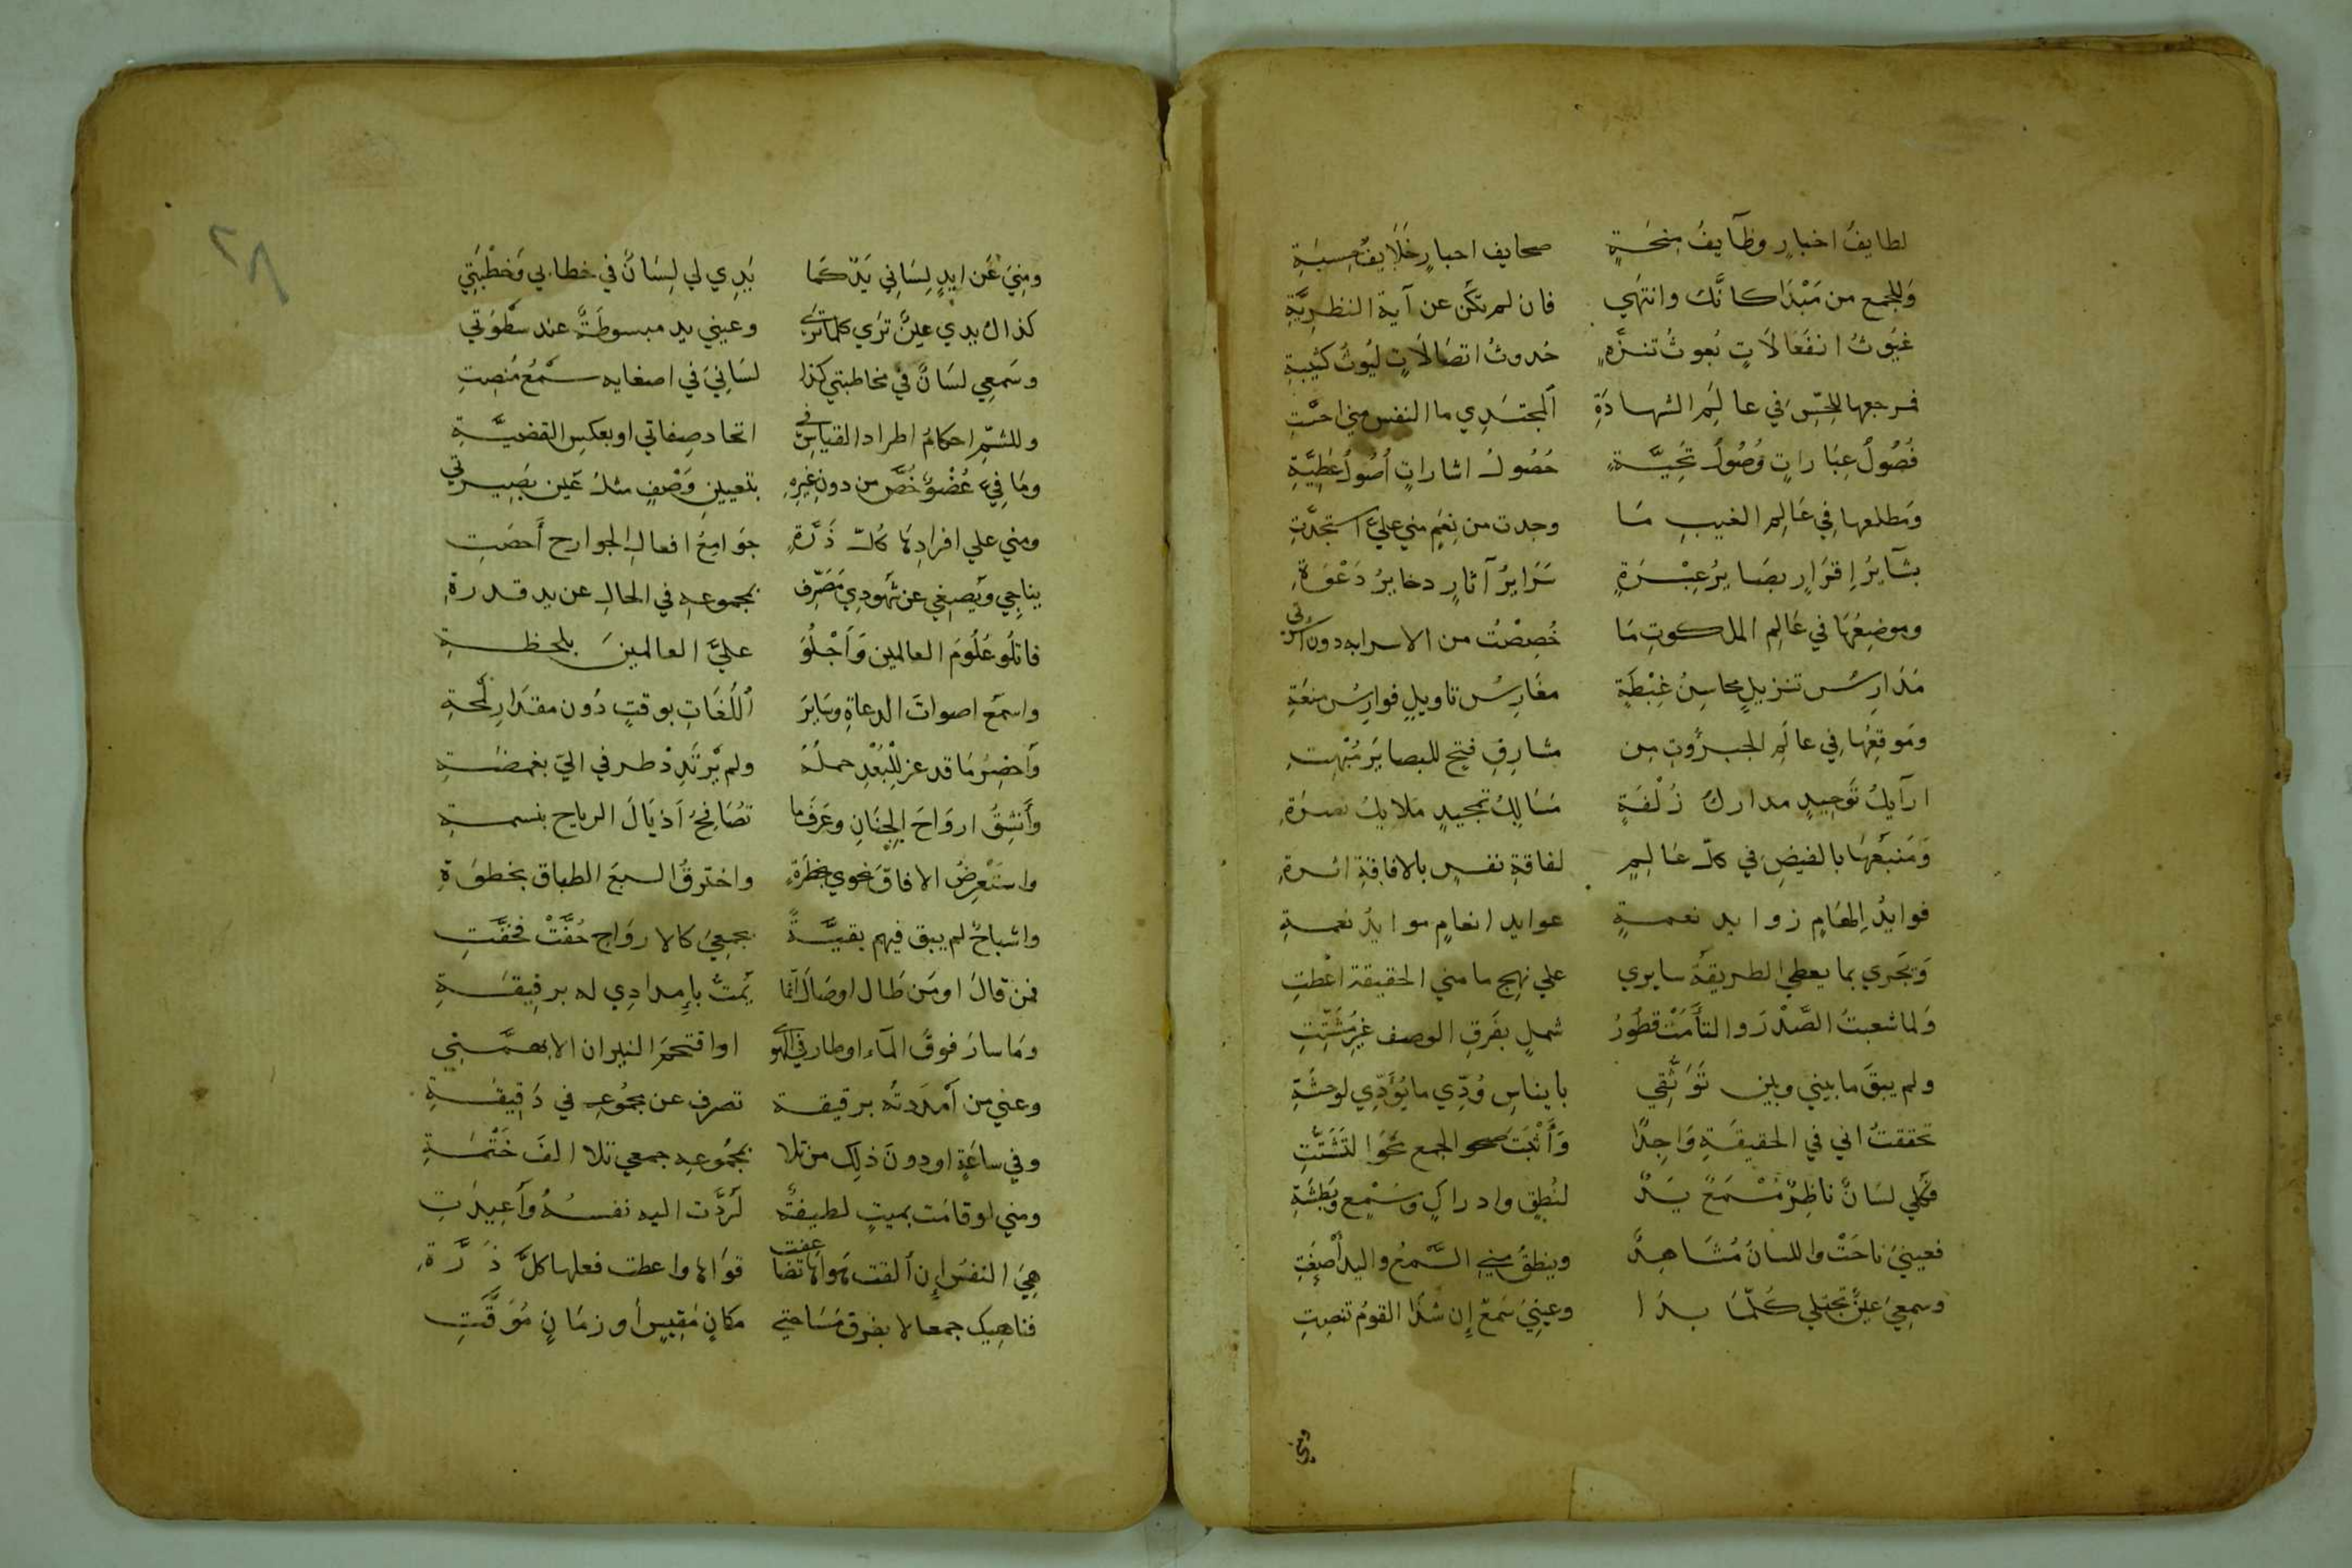 لطايفُ اخبارٍ وظَآيفُ مِنحَةٍ صحايف احبارٍ خَلَايفُ حِسبَةِ
وَللجمع من مَبْدَاكانَّكَ وانتهَي فان لم تكَن عن آية النظرِيَّةِ
غيُوثُ انفَعَالَاتٍ بُعوثُ تنزُّهٍ حُدوثُ اتصَالَاتٍ ليُوثُ كتِيبةِ
فمرجعها للحِسِّ في عالَمِ الشهادَةِ المجتَدِي ما النفس مِني احسَّتِ
فُصُولُ عِبَاراتٍ وُصُولُ تحِيَّةٍ حُصُولُ اشاراتٍ أُصُولُ عَطِيَّةِ
وَمَطلعها في عَالِمِ الغيبِ مَا وجدت من نِعَمٍ مني علي استجدَّتِ
بشَآيرُ إِقرَارٍ بصَايرُ عِبْرَةٍ سَرَايرُ آثارٍ دخايرُ دَعْوَةِ
وموضِعُهَا في عَالِمِ الملكوتِ مَا خُصِصْتُ من الاسرابه دون اسرتي
مَدَارسُ تنزيلٍ محاسِنُ غِبْطَةٍ مغَارِسُ تاويلٍ فوارِسُ منعَةِ
وَمَوقِعُهَا في عالَمِ الجبرُوتِ مِن مشارِقِ فتحٍ للبصايرِ مُبْهِتِ
ارآيكُ تَوحِيدٍ مدارك زُلْفَةٍ مَسَالِكُ تمجيدٍ مَلايكُ نصرَةِ
وَمَنبَعُهَا بالفيضِ في كلِّ عَالِمٍ لفاقةِ نفسٍ بالافاقةِ اثرةِ
فوايدُ الهَامٍ زوايد نعمةٍ عوايد انعامٍ موايدُ نعمةِ
وَتجَري بما يعطي الطريقةُ سايري علي نهج ما مني الحقيقة اعْطتِ
وَلما شعبتُ الصَّدْرَ والتأَمَتْ قطُورُ شملٍ بفَرقِ الوصف غيرِ مُشَتِّتِ
ولم يبقَ ما بيني وبين تَوَثُّقِي بايناسِ وُدِّي ما يُؤَدِّي لوحشَةِ
تحققتُ اني في الحقيقَةِ وَاحِدٌ وَأَثْبَتَ صحو الجمع محَوَ التَشَتُّتِ
فكُلي لسَانٌ ناظِرٌ مَسْمَعٌ يَدٌ لنُطقٍ وادراكٍ وسَمْعٍ وبَطشَةِ
فعينيَ ناجَتْ واللسانُ مُشَاهِدٌ وينطِقُ منِي السَّمعُ واليدُ أَصْغَتِ
وسمعِيَ عينٌ تجتلي كُلّمَا بدَا وعينِيَ سَمعٌ إِن شَدَا القومُ تنصِتِ
ومني
٢٨
ومِنِيَ عَن ايدٍ لِسَانيَ يَدٌ كَمَا يَدِي لي لِسَانٌ في خطابي وَخطْبَتِي
كذاك يدي عينٌ ترَي كلما تري وعيني يد مبسوطَةٌ عند سَطْوَتي
وسَمعِي لسَانٌ في مخاطبتي كذا لسَانِيَ في اصغايه سَمْعُ مُنصِتِ
وللشمِّ احكامُ اطراد القياسِ في اتحاد صِفاتي او بعكسِ القضيَّةِ
ومَا فِيَّ عُضْوٌ خُصَّ من دونِ غيرِهِ بتعيينِ وَصْفٍ مثلُ عَينِ بَصِيرتي
ومني علي افرادِهَا كُلُّ ذَرَّةٍ جوَامِعُ افعالِ الجوارح أَحصَتِ
يناجِي ويُصغِي عن شهُودِي مُصَرِّفٌ بمجموعه في الحالِ عن يد قدرةِ
فاتلُو عُلُومَ العالمين وَأجْلُوَ عليَّ العالمينَ بلحظةِ
واسمَعُ اصواتَ الدعاةِ وسَايرَ اللُغَاتِ بوقتٍ دُون مقدَارِ لمحةِ
وَأحضِرُ مَا قد عز للْبُعْدِ حملُهُ ولم يَرْتَدِدْ طرفي اليّ بغمضةِ
وأَنشِقُ اروَاحَ الجِنَانِ وعَرَفَ ما تُصَافِحُ اَذيَالَ الرياح بنسمةِ
واستَعْرِضُ الافاقَ نحوي بخطرَةٍ واخترقُ السبعَ الطباق بخطوَةِ
واشباحُ لم يبق فيهم بقيَّةٌ بجمعِيَ كالارواحِ حُفَّتْ فخفَّتِ
فمن قالَ او مَن طَال او صَال انما يَمُتُّ بإِمدادِي له برقيقَةِ
ومَا سارَ فوقَ المآء او طار في الهوا او اقتحمَ النيران الا بهمَّتِي
وعني من اَمدَدتُه برقيقة تصرف عن مجموعه في دَقِيقةِ
وفي ساعَةٍ او دونَ ذلِك من تلا بمجمُوعِهِ جمعي تلا الفَ خَتْمَةِ
ومني لو قامَت بميتٍ لطيفةٌ لَرُدَّت اليه نفسُهُ وَأُعِيدَتِ
هِيَ النفسُ إِن ألقت هَواهَا تضاعفت قوَاها واعطت فعلها كلَّ ذَرَّةِ
فناهِيك جمعا لا بفرق مَسَاحتي مكانٍ مَقِيسٍ أو زمَانٍ مُوَقَّتِ